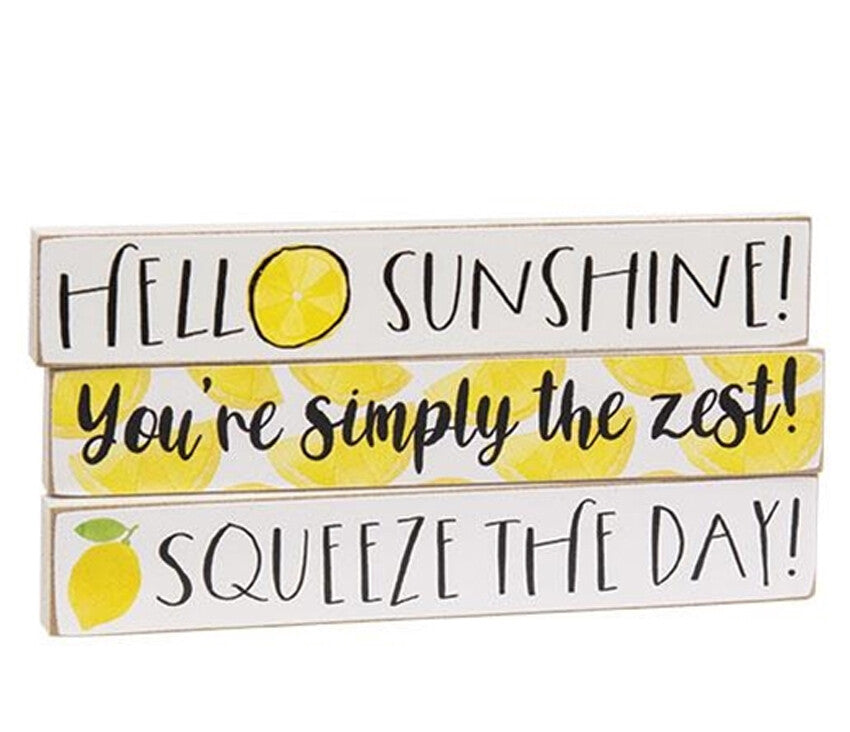 HELLO SUNSHINE!
You're simply the zest!
SQUEEZE THE DAY!